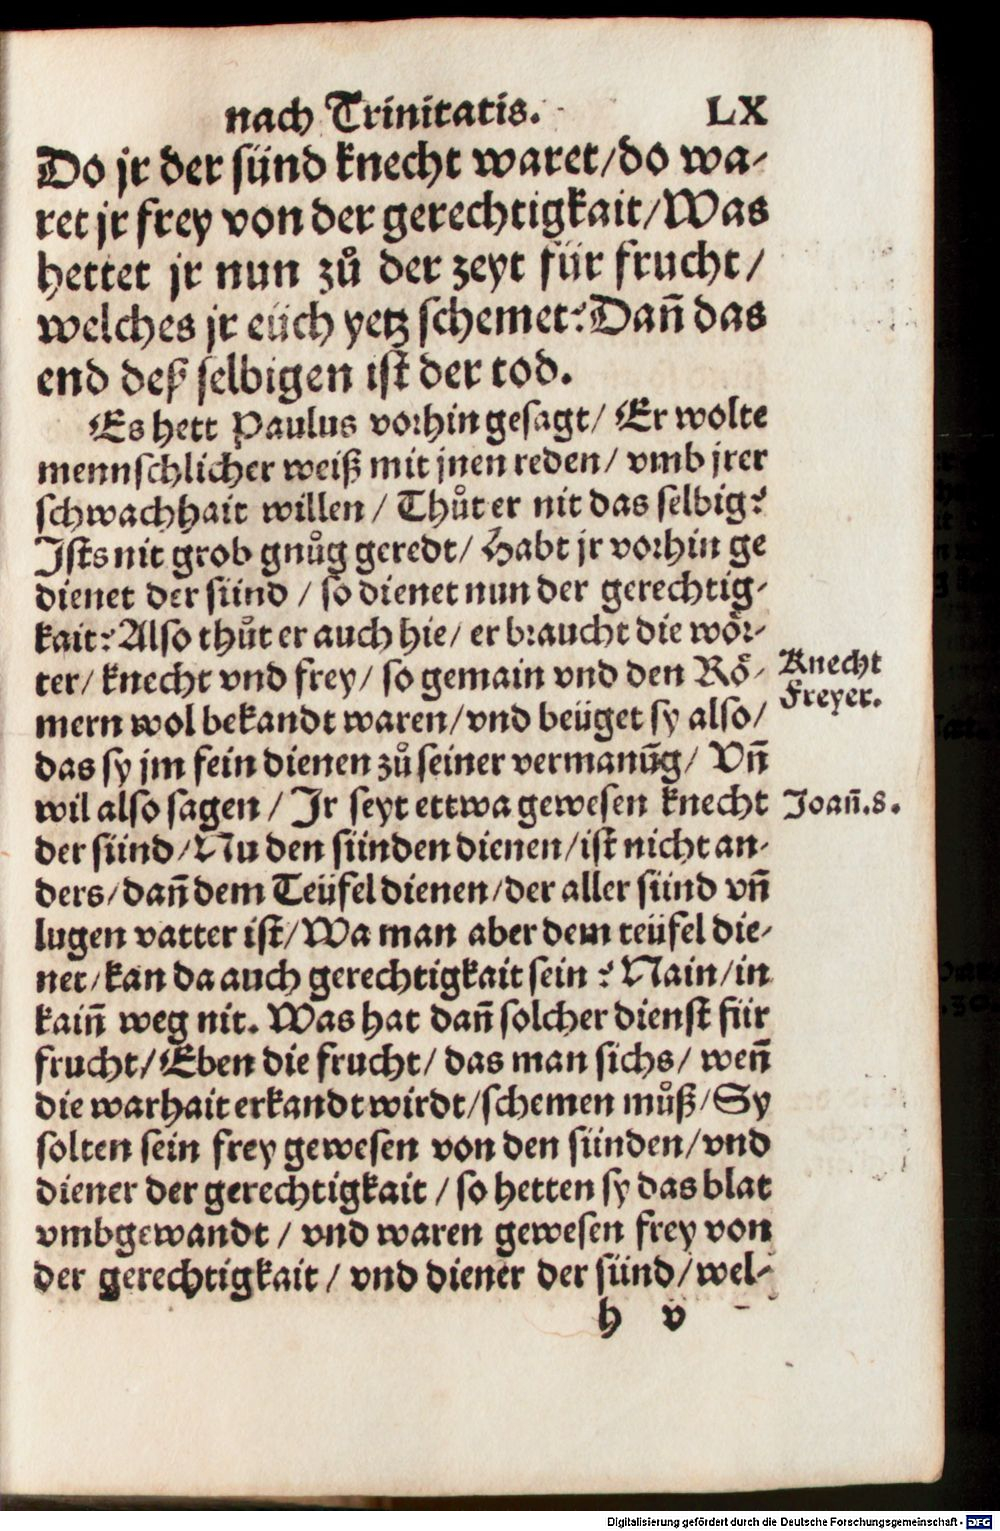 nach Trinitatis. LX
Do jr der sünd knecht waret/do wa-
ret jr frey von der gerechtigkait/Was
hettet jr nun zů der zeyt für frucht/
welches jr eüch yetz schemet? Dañ das
end deß selbigen ist der tod.
Es hett Paulus vorhin gesagt/ Er wolte
mennschlicher weiß mit jnen reden/ vmb jrer
schwachhait willen/ Thůt er nit das selbig?
Jsts nit grob gnůg geredt/ Habt jr vorhin ge
dienet der sünd / so dienet nun der gerechtig-
kait? Also thůt er auch hie/ er braucht die wör-
ter/ knecht vnd frey/ so gemain vnd den Rö-
mern wol bekandt waren/vnd beüget sy also/
das sy jm fein dienen zů seiner vermanūg/ Vñ
wil also sagen / Jr seyt ettwa gewesen knecht
der sünd/Nu den sünden dienen/ist nicht an-
ders/dañ dem Teüfel dienen/der aller sünd vñ
lugen vatter ist/Wa man aber dem teüfel die-
net/kan da auch gerechtigkait sein? Nain/in
kaiñ weg nit. Was hat dañ solcher dienst für
frucht/Eben die frucht/ das man sichs/ weñ
die warhait erkandt wirdt/schemen můß/Sy
solten sein frey gewesen von den sünden/vnd
diener der gerechtigkait / so hetten sy das blat
vmbgewandt / vnd waren gewesen frey von
der gerechtigkait / vnd diener der sünd/wel-
h v
Knecht
Freyer.
Joañ.8.
Digitalisierung gefördert durch die Deutsche Forschungsgemeinschaft - DFG